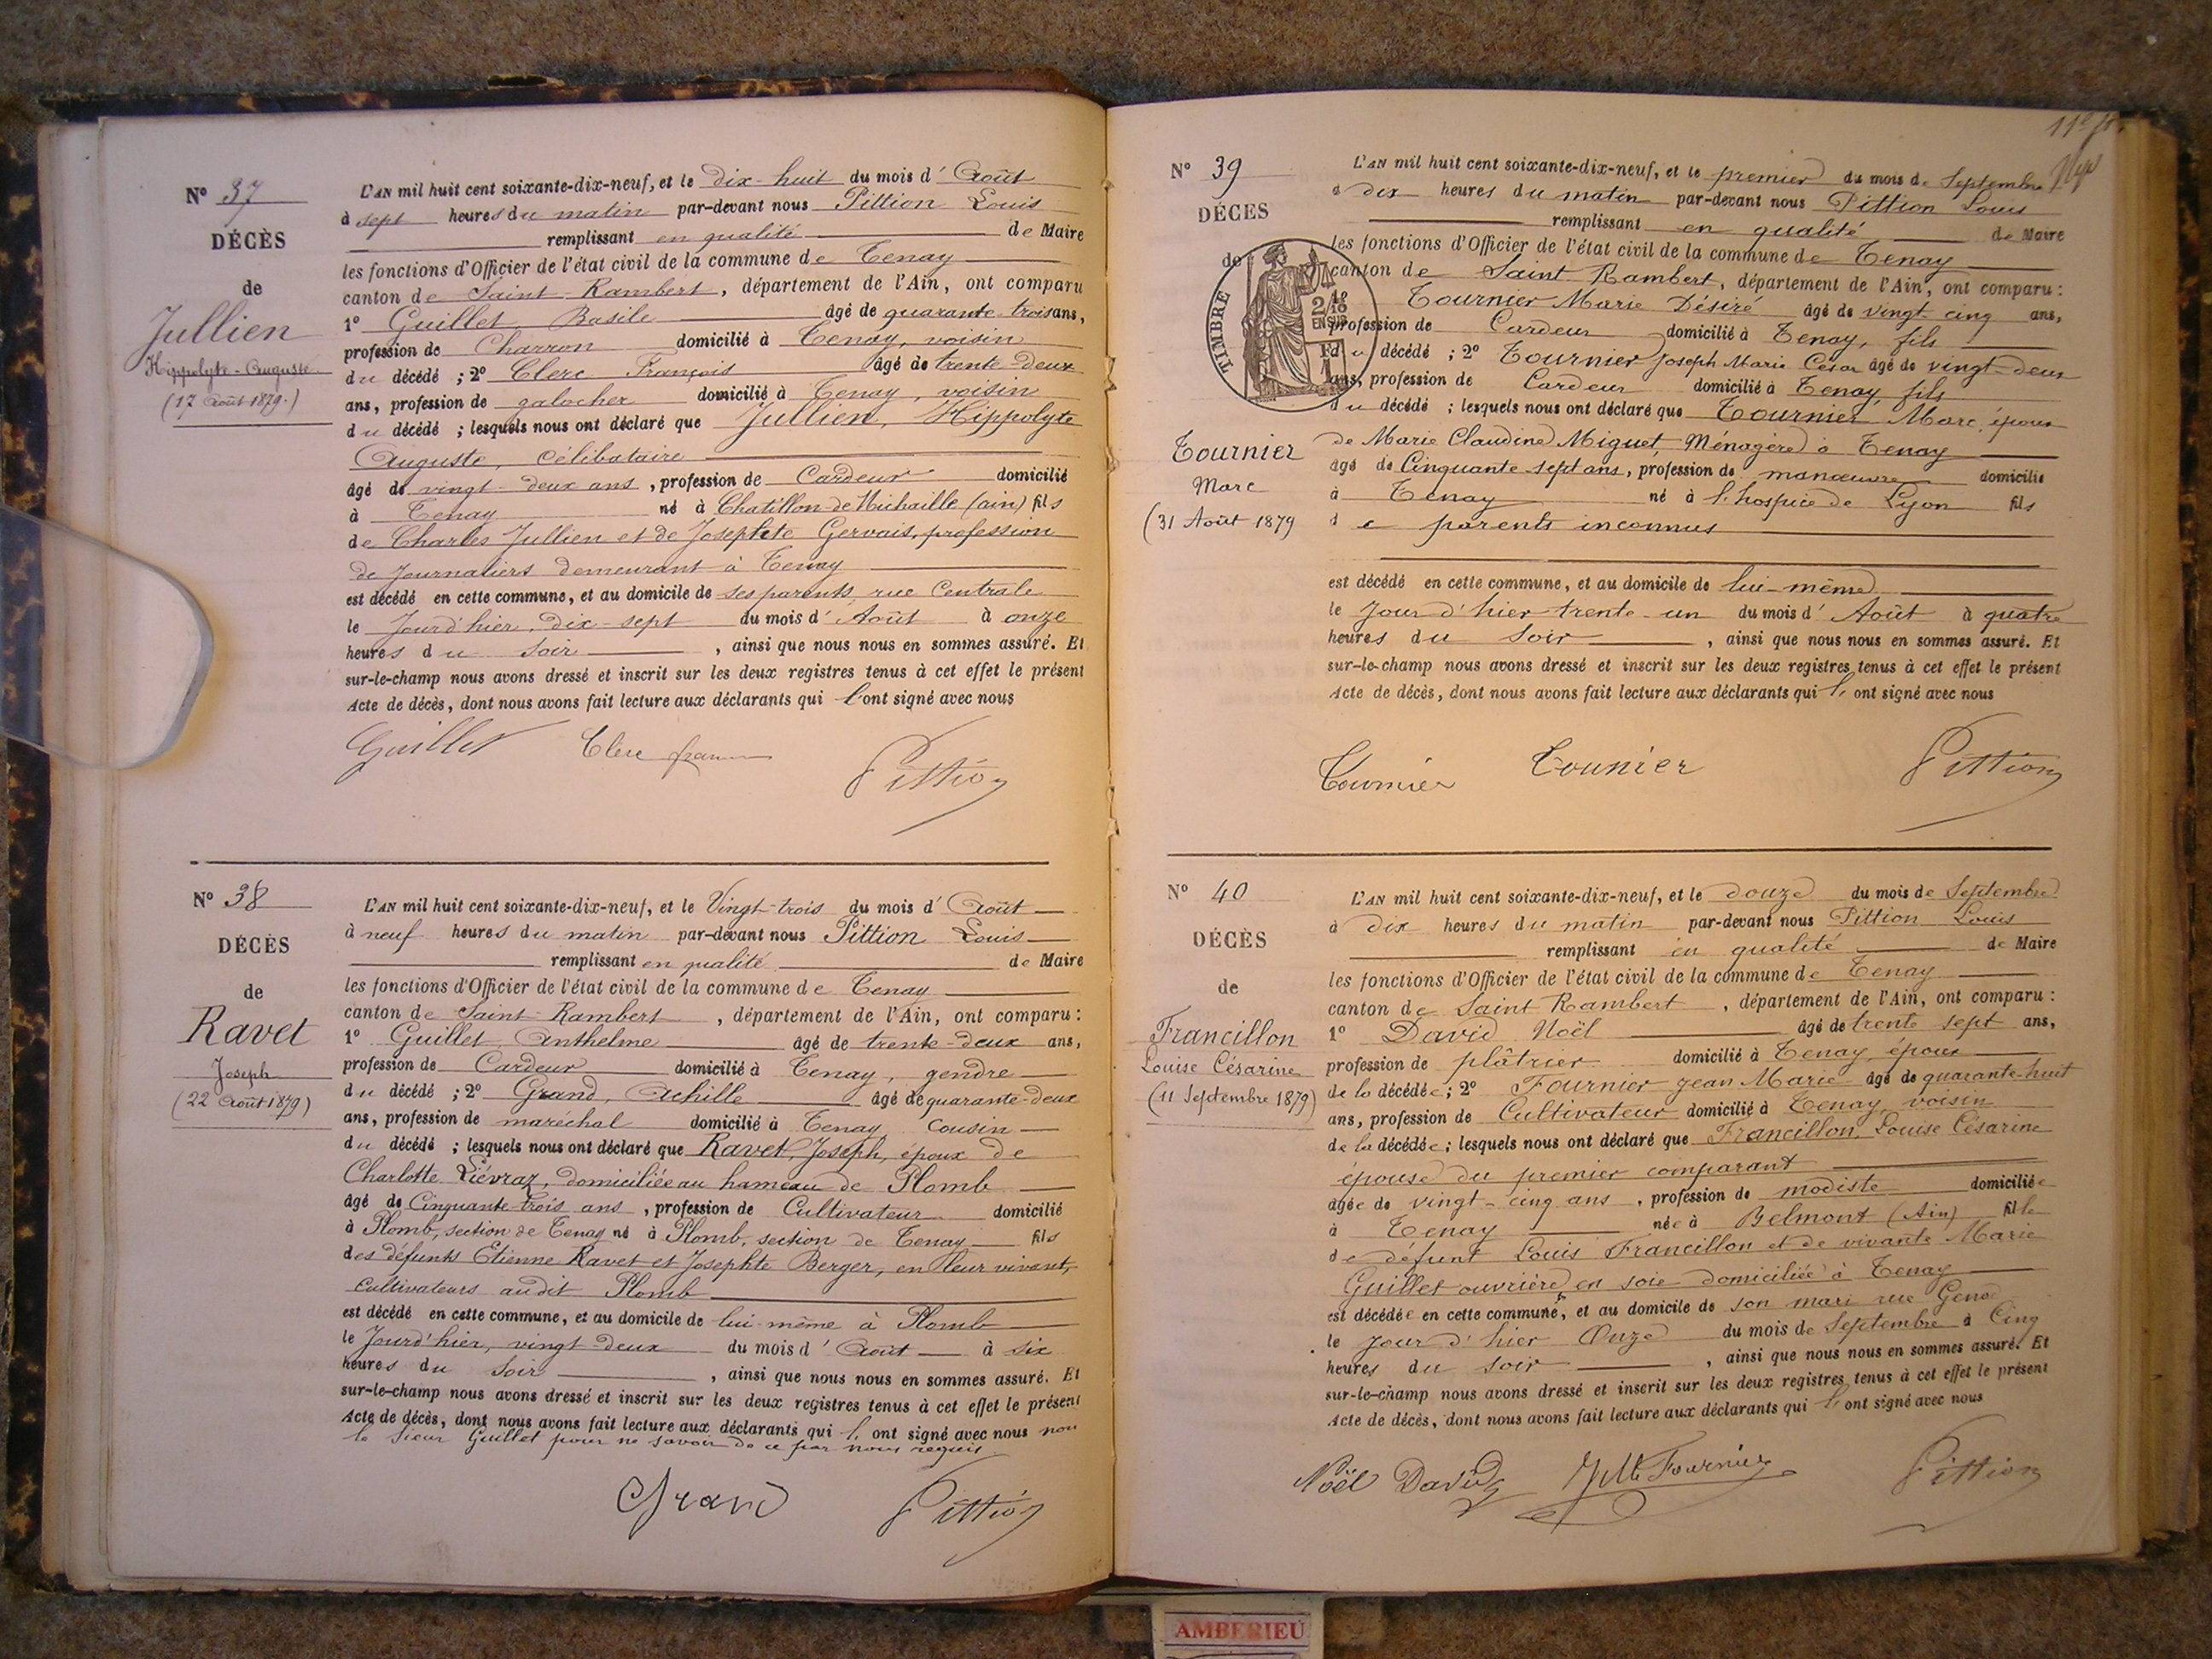 N° 37
DÉCÈS
de
Jullien
Hippolyte-Auguste
(17 Août 1879.)
L'AN mil huit cent soixante-dix-neuf, et le dix-huit du mois d'Août
à sept heures du matin par-devant nous Pittion Louis
remplissant en qualité de Maire
les fonctions d'Officier de l'état civil de la commune de Tenay
canton de Saint-Rambert, département de l'Ain, ont comparu
1° Guillet Basile âgé de quarante-trois ans,
profession de Charron domicilié à Tenay, voisin
du décédé ; 2° Clerc François âgé de trente-deux
ans, profession de galocher domicilié à Tenay, voisin
du décédé ; lesquels nous ont déclaré que Jullien, Hippolyte
Auguste, Célibataire
âgé de vingt-deux ans, profession de Cardeur domicilié
à Tenay né à Chatillon-de-Michaille (ain) fils
de Charles Jullien et de Josephte Gervais, profession
de Journaliers demeurant à Tenay
est décédé en cette commune, et au domicile de ses parents, rue Centrale
le Jourd'hier, dix-sept du mois d'Août à onze
heures du soir, ainsi que nous nous en sommes assuré. Et
sur-le-champ nous avons dressé et inscrit sur les deux registres tenus à cet effet le présent
Acte de décès, dont nous avons fait lecture aux déclarants qui l'ont signé avec nous
Guillet Clerc Pittion
N° 38
DÉCÈS
de
Ravet
Joseph
(22 Août 1879)
L'AN mil huit cent soixante-dix-neuf, et le Vingt-trois du mois d'Août
à neuf heures du matin par-devant nous Pittion Louis
remplissant en qualité de Maire
les fonctions d'Officier de l'état civil de la commune de Tenay
canton de Saint-Rambert, département de l'Ain, ont comparu :
1° Guillet, Anthelme âgé de trente-deux ans,
profession de Cardeur domicilié à Tenay, gendre
du décédé ; 2° Grand, Achille âgé de quarante-deux
ans, profession de maréchal domicilié à Tenay Cousin
du décédé ; lesquels nous ont déclaré que Ravet, Joseph, époux de
Charlotte Liévraz, domiciliée au hameau de Plomb
âgé de Cinquante-trois ans, profession de Cultivateur domicilié
à Plomb, section de Tenay né à Plomb, section de Tenay fils
des défunts Etienne Ravet et Josephte Berger, en leur vivant,
Cultivateurs audit Plomb
est décédé en cette commune, et au domicile de lui-même à Plomb
le Jourd'hier, vingt-deux du mois d'Août à six
heures du soir, ainsi que nous nous en sommes assuré. Et
sur-le-champ nous avons dressé et inscrit sur les deux registres tenus à cet effet le présent
Acte de décès, dont nous avons fait lecture aux déclarants qui l'ont signé avec nous non
le sieur Guillet pour ne savoir de ce par nous requis
Grand Pittion
N° 39
DÉCÈS
de
TIMBRE
2/10
EN SUS
Tournier
Marc
(31 Août 1879
L'AN mil huit cent soixante-dix-neuf, et le premier du mois de Septembre
à dix heures du matin par-devant nous Pittion Louis
remplissant en qualité de Maire
les fonctions d'Officier de l'état civil de la commune de Tenay
canton de Saint Rambert, département de l'Ain, ont comparu :
1° Tournier Marie Désiré âgé de vingt-cinq ans,
profession de Cardeur domicilié à Tenay, fils
du décédé ; 2° Tournier Joseph Marie César âgé de vingt-deux
ans, profession de Cardeur domicilié à Tenay, fils
du décédé ; lesquels nous ont déclaré que Tournier Marc, époux
de Marie Claudine Miguet, Ménagère à Tenay
âgé de Cinquante-sept ans, profession de manœuvre domicilié
à Tenay né à l'hospice de Lyon fils
de parents inconnus
est décédé en cette commune, et au domicile de lui-même
le jour d'hier trente-un du mois d'Août à quatre
heures du soir, ainsi que nous nous en sommes assuré. Et
sur-le-champ nous avons dressé et inscrit sur les deux registres tenus à cet effet le présent
Acte de décès, dont nous avons fait lecture aux déclarants qui l'ont signé avec nous
Tournier Tounier Pittion
N° 40
DÉCÈS
de
Francillon
Louise Césarine
(11 Septembre 1879)
L'AN mil huit cent soixante-dix-neuf, et le douze du mois de Septembre
à dix heures du matin par-devant nous Pittion Louis
remplissant en qualité de Maire
les fonctions d'Officier de l'état civil de la commune de Tenay
canton de Saint Rambert, département de l'Ain, ont comparu :
1° David Noël âgé de trente sept ans,
profession de plâtrier domicilié à Tenay, époux
de la décédée ; 2° Fournier Jean Marie âgé de quarante-huit
ans, profession de Cultivateur domicilié à Tenay, voisin
de la décédée ; lesquels nous ont déclaré que Francillon, Louise Césarine
épouse du premier comparant
âgée de vingt-cinq ans, profession de modiste domiciliée
à Tenay née à Belmont (Ain) fille
de défunt Louis Francillon et de vivante Marie
Guillet ouvrière en soie domiciliée à Tenay
est décédée en cette commune, et au domicile de son mari rue
le jour d'hier Onze du mois de Septembre à Cinq
heures du soir, ainsi que nous nous en sommes assuré. Et
sur-le-champ nous avons dressé et inscrit sur les deux registres tenus à cet effet le présent
Acte de décès, dont nous avons fait lecture aux déclarants qui l'ont signé avec nous
Noël David JM Fournier Pittion
AMBERIEU